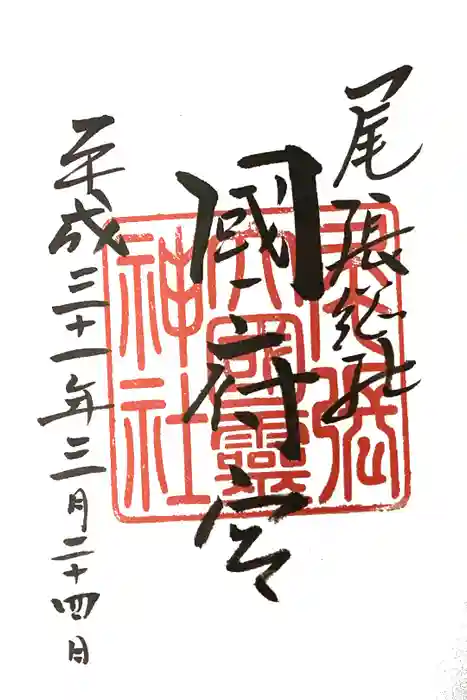 尾張総社
國府宮
平成三十一年三月二十四日
尾張
大國霊
神社